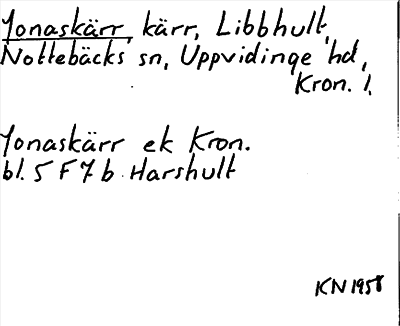 Jonaskärr, kärr, Libbhult,
Nottebäcks sn, Uppvidinge hd,
Kron. l.
Jonaskärr ek Kron.
bl. 5 F 7 b Harshult
KN 1958